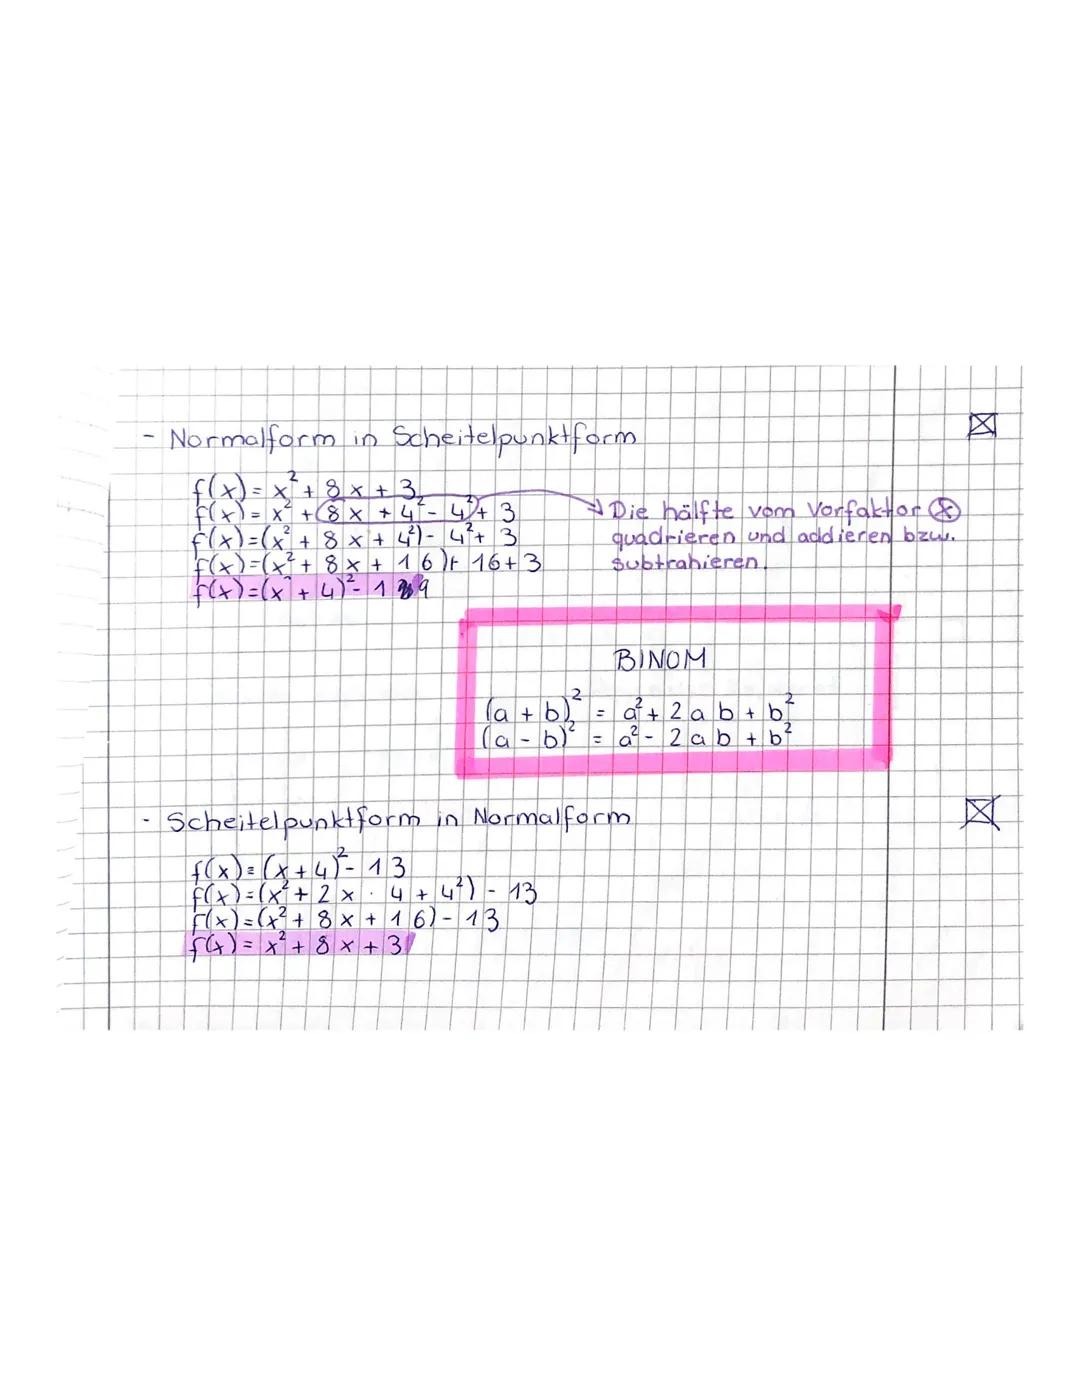 - Normalform in Scheitelpunktform
f(x) = x² + 8x + 3
f(x) = x² + (8x + 4² - 4²) + 3
f(x) = (x² + 8x + 4²) - 4² + 3
f(x) = (x² + 8x + 16) + 16 + 3
f(x) = (x + 4)² - 1 9
→ Die hälfte vom Vorfaktor x
quadrieren und addieren bzw.
subtrahieren.
BINOM
(a + b)² = a² + 2ab + b²
(a - b)² = a² - 2ab + b²
- Scheitelpunktform in Normalform
f(x) = (x + 4)² - 13
f(x) = (x² + 2x · 4 + 4²) - 13
f(x) = (x² + 8x + 16) - 13
f(x) = x² + 8x + 3